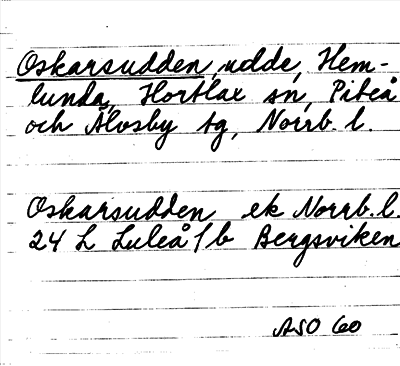 Oskarsudden, udde, Hem-
lunda, Hortlax sn, Piteå
och Älvsby tg, Norrb. l.
Oskarsudden ek Norrb. l.
24 L Luleå/b Bergsviken
ASO 60